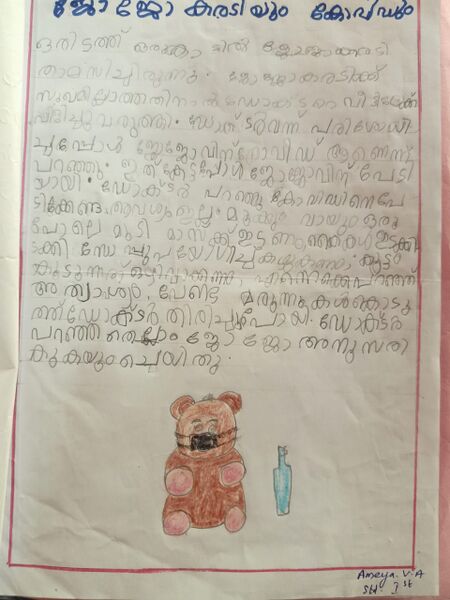 ജോ ജോ കരടിയും കോവിഡും
ഒരിടത്ത് ഒരു കാട്ടിൽ ജോജോ കരടി
താമസിച്ചിരുന്നു. ജോജോ കരടിക്ക്
സുഖമില്ലാത്തതിനാൽ ഡോക്ടറെ വീട്ടിലേക്ക്
വിളിച്ചു വരുത്തി. ഡോക്ടർ വന്ന് പരിശോധി
ച്ചപ്പോൾ ജോജോവിന് കോവിഡ് ആണെന്ന്
പറഞ്ഞു. ഇത് കേട്ടപ്പോൾ ജോജോവിന് പേടി
യായി. ഡോക്ടർ പറഞ്ഞു കോവിഡിനെ പേ
ടിക്കേണ്ട ആവശ്യം ഇല്ല. മൂക്കും വായും ഒരു
പോലെ മൂടി മാസ്ക്ക് ഇടണം, കൈകൾ ഇടക്കി
ടക്കി സോപ്പുപയോഗിച്ച് കഴുകണം, കൂട്ടം
കൂടുന്നത് ഒഴിവാക്കണം, എന്നൊക്കെ പറഞ്ഞ്
അത്യാവശ്യം വേണ്ട മരുന്നുകൾ കൊടു
ത്ത് ഡോക്ടർ തിരിച്ചുപോയി. ഡോക്ടർ
പറഞ്ഞതെല്ലാം ജോ ജോ അനുസരി
ക്കുകയും ചെയ്തു.
Ameya. V. A
Std. I st